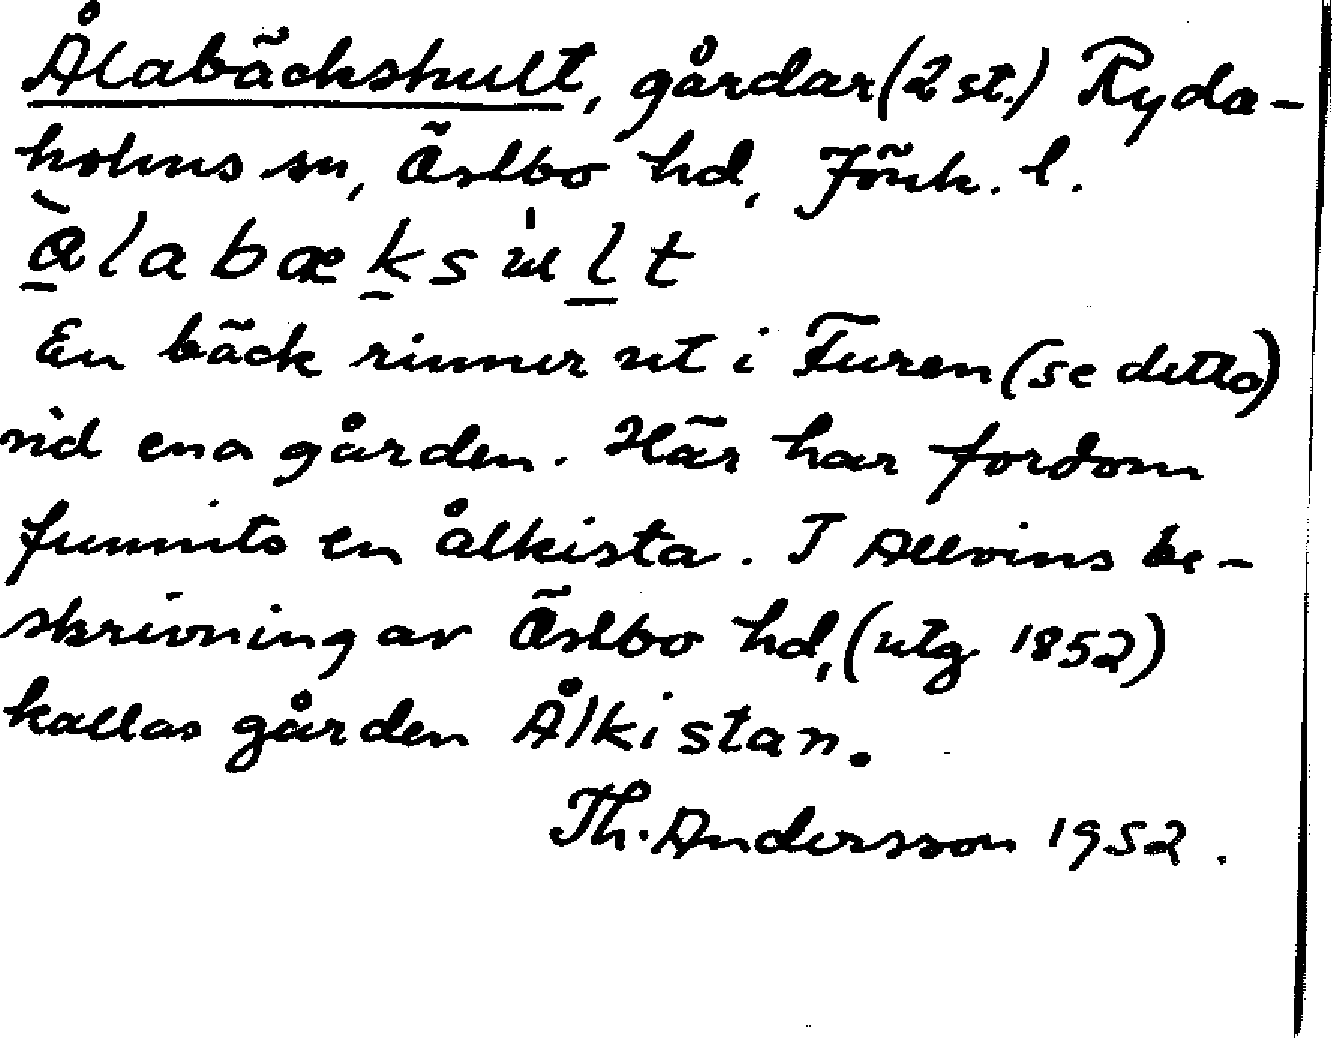 Ålabäckshult, gårdar (2 st.) Ryda-
holms sn, Östbo hd, Jönk. l.
àlabæksult
En bäck rinner ut i Furen (se detta)
vid ena gården. Här har fordom
funnits en ålkista. I Allvins be-
skrivning av Östbo hd, (utg 1852)
kallas gården Ålkistan.
Th. Andersson 1952.